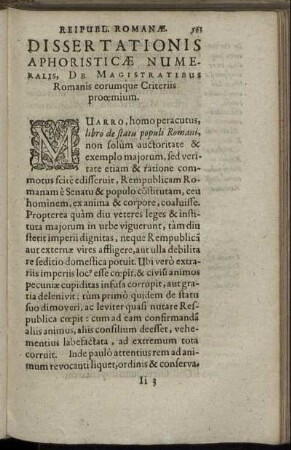 REIPUBL. ROMANÆ. 561
DISSERTATIONIS
APHORISTICÆ NUME-
RALIS, DE MAGISTRATIBUS
Romanis eorumque Criteriis
prooemium.
MUARRO, homo peracutus,
libro de statu populi Romani,
non solùm auctoritate &
exemplo majorum, sed veri-
tate etiam & ratione com-
motus scitè edisseruit, Rempublicam Ro-
manam è Senatu & populo cōstitutam, ceu
hominem, ex anima & corpore, coaluisse.
Propterea quàm diu veteres leges & insti-
tuta majorum in urbe viguerunt, tàm diu
stetit imperii dignitas, neque Rempublicā
aut externæ vires affligere, aut ulla debilita
re seditio domestica potuit. Ubi verò extra-
riis imperiis loc9 esse cœpit, & civiū animos
pecuniæ cupiditas infusa corripuit, aut gra-
tia delenivit: tum primò quidem de statu
suo dimoveri, ac leviter quasi nutare Res-
publica cœpit: cum ad eam confirmandā
aliis animus, aliis consilium deesset, vehe-
mentius labefactata, ad extremum tota
corruit. Inde paulò attentius rem ad ani-
mum revocanti liquet, ordinis & conserva-
Ii 3